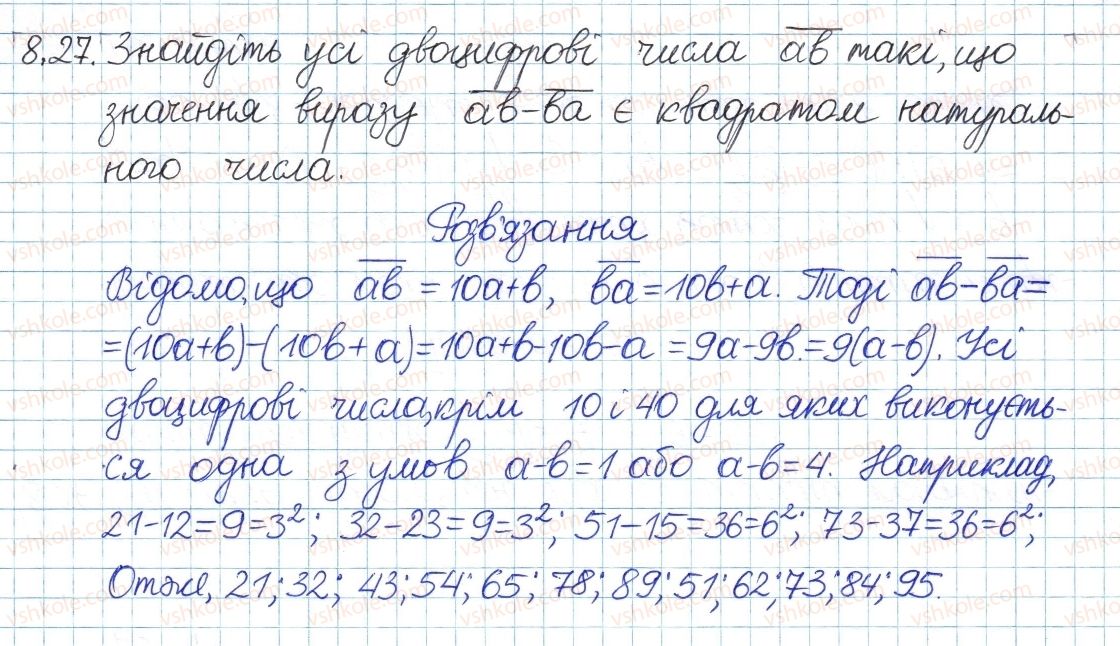 8.27. Знайдіть усі двоцифрові числа ab такі, що
значення виразу ab-ba є квадратом натураль-
ного числа.
Розв'язання
Відомо, що ab = 10a+b, ba = 10b+a. Тоді ab-ba=
=(10a+b)-(10b+a)=10a+b-10b-a =9a-9b.=9(a-b). Усі
двоцифрові числа, крім 10 і 40 для яких виконуєть-
ся одна з умов a-b=1 або a-b=4. Наприклад,
21-12=9=3²; 32-23=9=3²; 51-15=36=6²; 73-37=36=6²;
Отже, 21; 32; 43; 54; 65; 78; 89; 51; 62; 73; 84; 95.